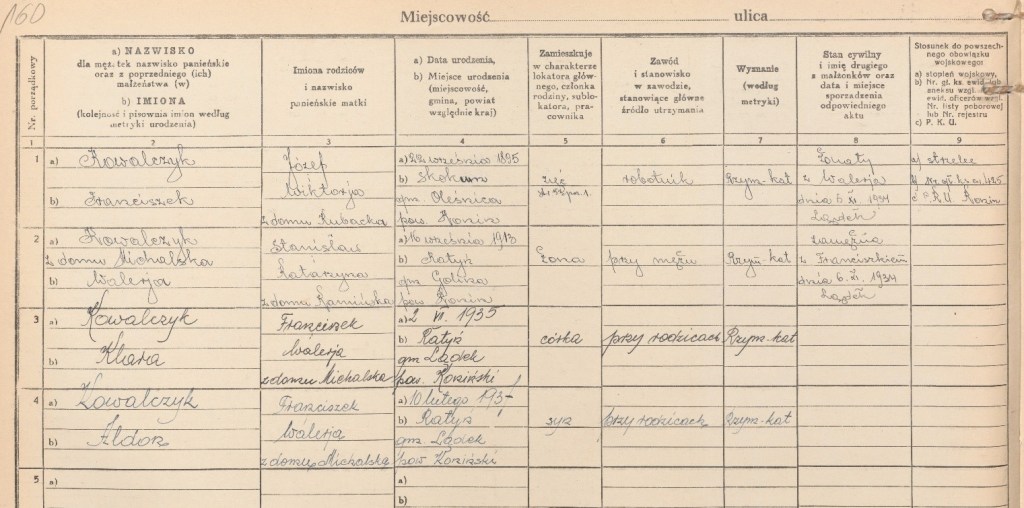 160
Miejscowość ulica
Nr. porządkowy
a) NAZWISKO
dla męż. tek nazwisko panieńskie
oraz z poprzedniego (ich)
małżeństwa (w)
b) IMIONA
(kolejność i pisownia imion według
metryki urodzenia)
Imiona rodziców
i nazwisko
panieńskie matki
a) Data urodzenia,
b) Miejsce urodzenia
(miejscowość,
gmina, powiat
względnie kraj)
Zamieszkuje
w charakterze
lokatora głów-
nego, członka
rodziny, sublo-
katora, pra-
cownika
Zawód
i stanowisko
w zawodzie,
stanowiące główne
źródło utrzymania
Wyznanie
(według
metryki)
Stan cywilny
i imię drugiego
z małżonków oraz
data i miejsce
sporządzenia
odpowiedniego
aktu
Stosunek do powszech-
nego obowiązku
wojskowego:
a) stopień wojskowy,
b) Nr. gł. ks. ewid. lub
aneksu wzgl.
ewid. oficerów wzgl.
Nr. listy poborowej
lub Nr. rejestru
c) P. K. U.
1 2 3 4 5 6 7 8 9
1
a) Kowalczyk
b) Franciszek
Józef
Wiktorja
z domu Kubacka
a) 22 września 1895
b) Skokum
gm. Oleśnica
pow. Konin
zięć
robotnik
Rzym-kat
Żonaty
z Walerją
dnia 6 XI. 1934
Lądek
a) strzelec
c P.K.U Konin
2
a) Kowalczyk
z domu Michalska
b) Walerja
Stanisław
Katarzyna
z domu Kamińska
a) 16 września 1913
b) Ratyń
gm Golina
pow. Konin
żona
przy mężu
Rzym-kat
zamężna
z Franciszkiem
dnia 6. XI. 1934
Lądek
3
a) Kowalczyk
b) Klara
Franciszek
Walerja
z domu Michalska
a) 2 VI. 1935
b) Ratyń
gm Lądek
pow. Koniński
córka
przy rodzicach
Rzym-kat
4
a) Kowalczyk
b) Aldor
Franciszek
Walerja
z domu Michalska
a) 10 lutego 1937
b) Ratyń
gm. Lądek
pow Koniński
syn
przy rodzicach
Rzym-kat
5
a)
b)
a)
b)